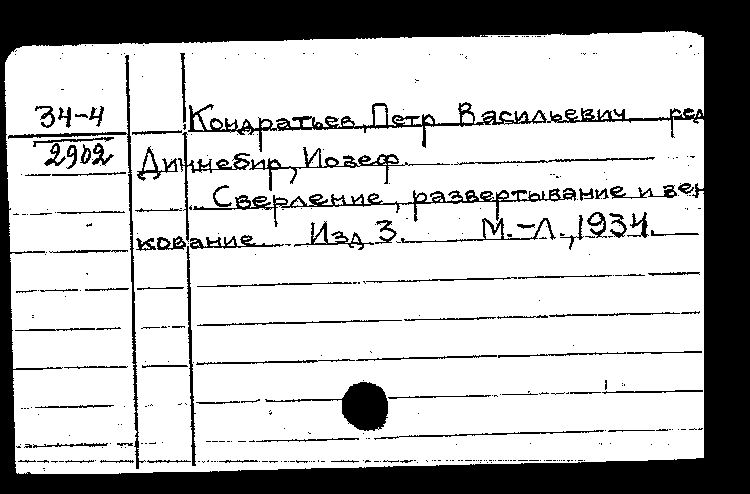 34-4
2902
Кондратьев, Петр Васильевич ред
Диннебир, Иозеф.
Сверление, развертывание и зен
кование. Изд 3. М.-Л., 1934.